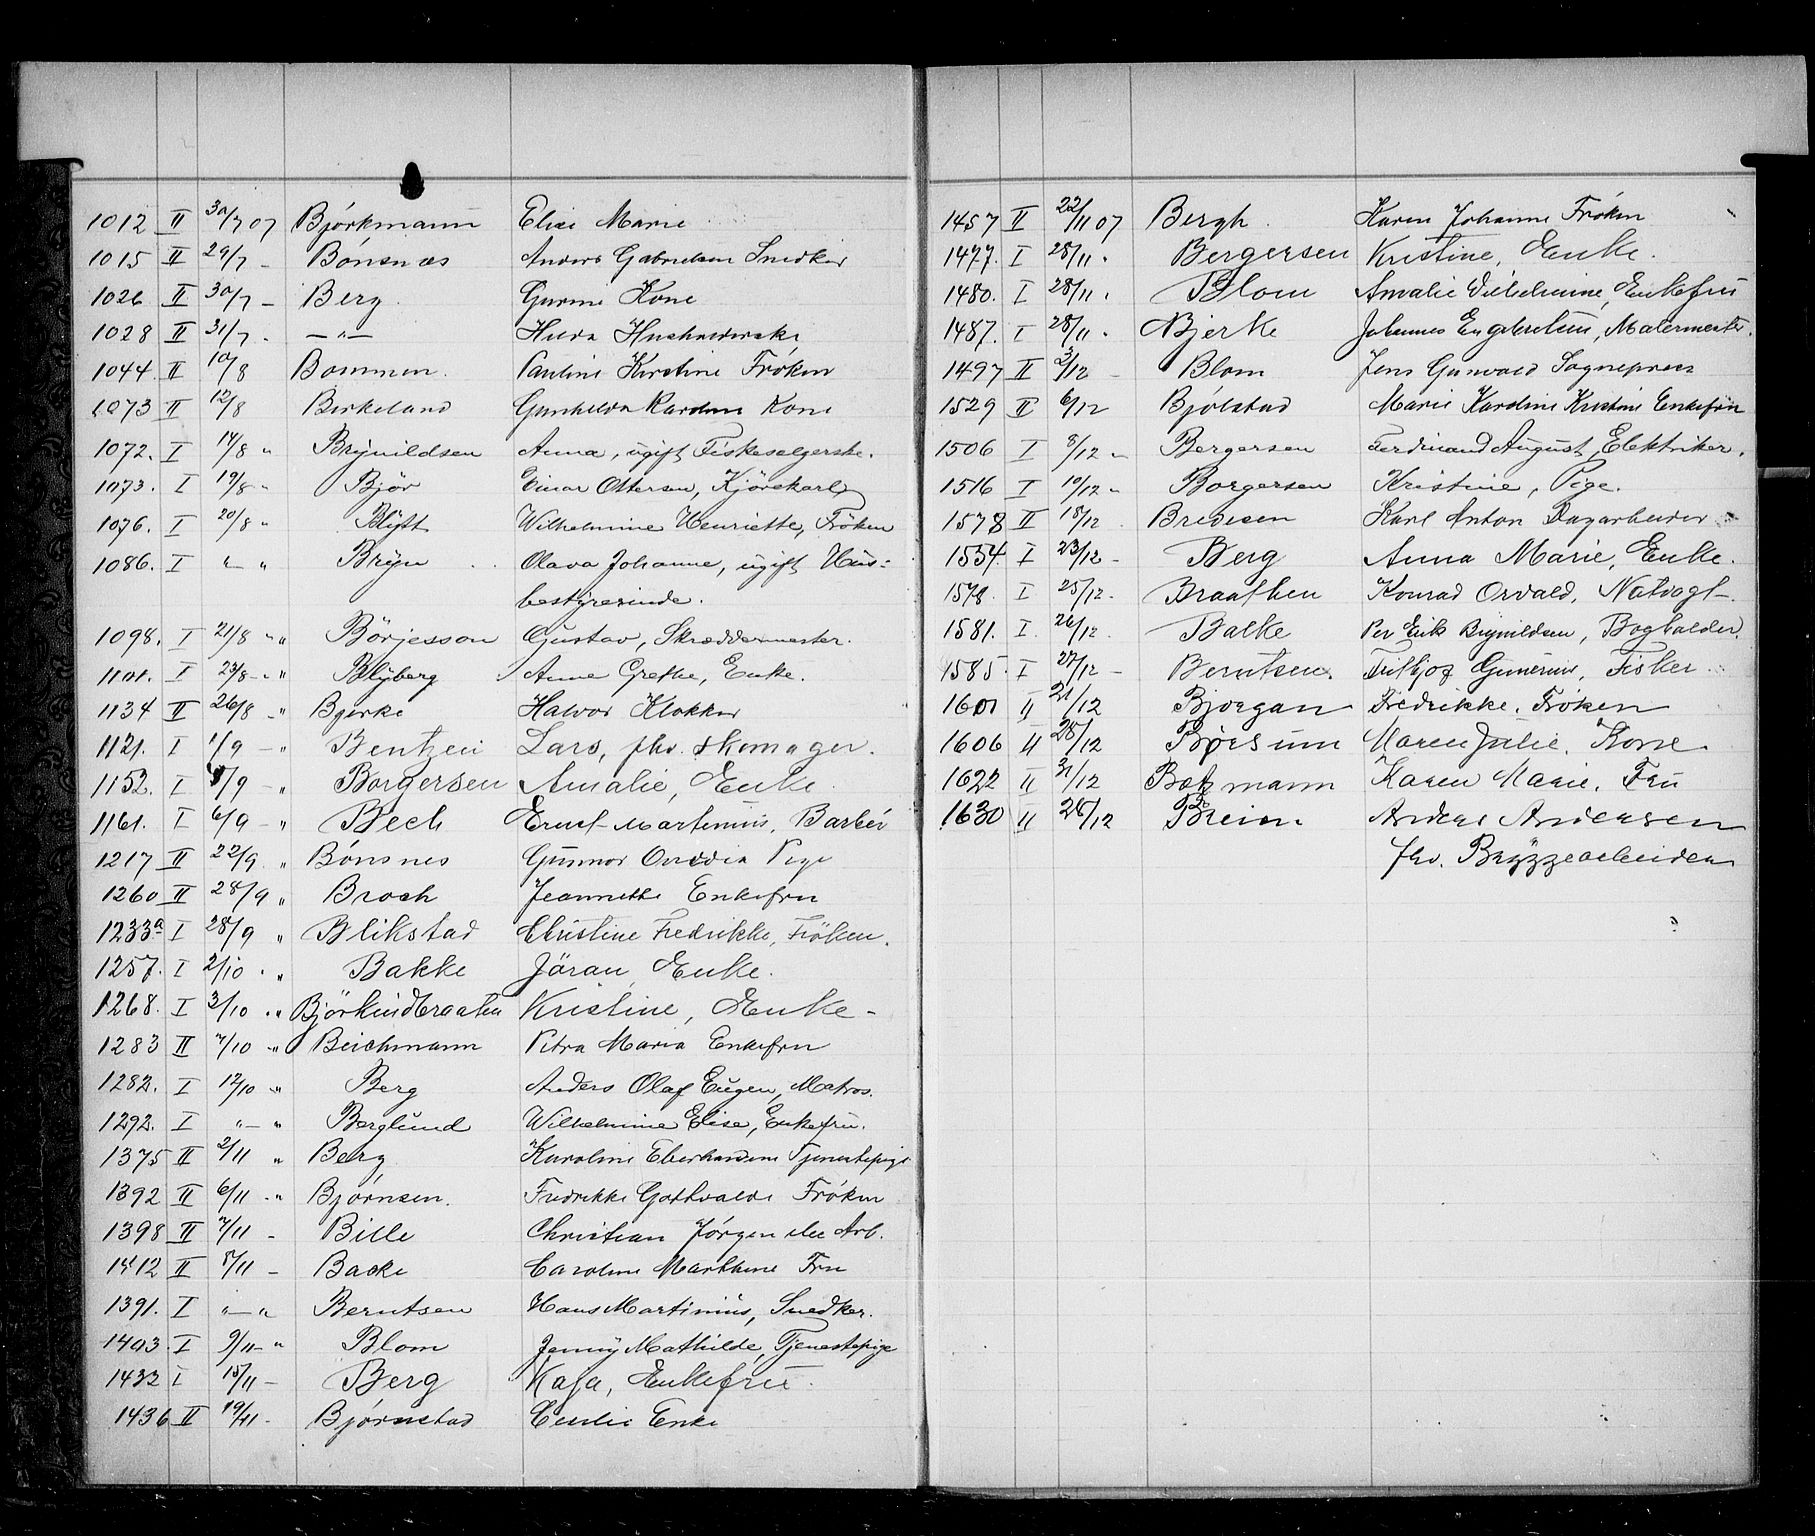 1012 II 30/7 07 Björkmann Elise Marie
1015 II 29/7 - Bönsnæs Anders Gabrielsen Snedker
1026 II 30/7 - Berg Gurine Kone
1028 II 31/7 - —"— Hulda
1044 II 10/8 Bommen Pauline Kirstine Frøken
1073 II 12/8 Birkeland Gunhilda Karoline Kone
1072. I 14/8 " Brynildsen Anna, ugift Fiskesælgerske.
1073. I 19/8 - " Björ Einar Ottersen, Kjörekarl
1076. I 20/8 " Blijft Wilhelmine Henriette, Fröken
1086. I "—" Bryn Olava Johanne, ugift Hus=
bestyrerinde.
1098. I 21/8 - " Börjesson Gustav, Skræddermester.
1101. I 23/8 - " Blyberg Anne Grethe, Enke.
1134 II 26/8 - " Bjerke Halvor Klokker
1121. I 1/9 - " Bentzen Lars, fhv. skomager.
1152. I 5/9 - " Borgersen Amalie, Enke
1161. I 6/9 - " Bech Ernst Martinius, Barbér
1217 II 22/9 " Bönsnes Gunnor Ovidia Pige
1260 II 28/9 " Broch Jeannette Enkefru
1233a I 28/9 " Blikstad Christine Fredrikke, Fröken.
1257. I 2/10 . " Bakke Jöran, Enke.
1268. I 3/10 . " Björkindbraaten Kristine, Enke -
1283 II 7/10 - " Beichmann Petra Maria Enkefru
1282. I 12/10 - " Berg Anders Olaf Eugen, Matros.
1292. I "—" Berglund Wilhelmine Elise, Enkefru.
1375 II 2/11 " Berg Karoline Eberhardine Tjenestepige
1392 II 6/11 - " Björnsen. Fredrikke Gothvalda Frøken
1398 II 7/11 - Bille Christian Jörgen Arb.
1412 II 8/11 - Backe Caroline Marthine Fru
1391. I "—" Berntsen Hans Martinius, Snedker.
1403. I 9/11 - " Blom Jenny Mathilde, Tjenestepige
1432 I 15/11 - Berg Kaja, Enkefru.
1436 II 19/11 - Björnstad Cecilie Enke
1457 II 22/11 07 Bergh. Karen Johanne Frøken
1477. I 28/11 . Bergersen Kristine, Enke.
1480. I 28/11 . Blom Amalie Vilhelmine, Enkefru
1487. I 28/11 . Bjerke Johannes Engebretsen, Malermester.
1497 II 3/12 - Blom Jens Gunvald Sogneprest
1529 II 6/12 Bjölstad Marie Karoline Kristine Enkefru
1506 I 8/12 - Bergersen Ferdinand August, Elektriker.
1516 I 10/12 - Borgersen Kristine, Pige.
1578 II 18/12 Bredesen Karl Anton Dagarbeider
1554. I 23/12 - Berg Anna Marie, Enke.
1578. I 25/12 - Braathen Konrad Orvald, Natvagt -
1581. I. 26/12 . Balke Per Erik Brynildsen, Bogholder.
1585. I 27/12 - Berntsen. Fritjof Gunerius, Fisker
1601 II 21/12 Bjorgan Fredrikke. Frøken
1606 II 28/12 Børsum Maren Julie. Kone
1622 II 31/12 Botzmann Karen Marie. Fru
1630 II 28/12 Breim. Anders Andersen
fhv. Bryggearbeider